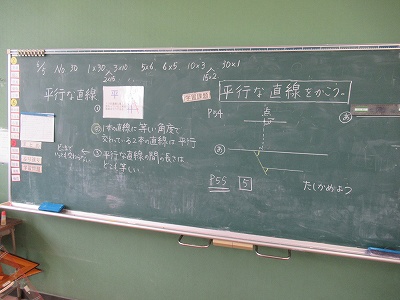 No 30 1×30 3×10 5×6 6×5 10×3 30×1
2×15 15×2
平行な直線
学習課題
平行な直線をかこう。
①
P54
点
あ
② 1本の直線に等しい角度で
交わっている2本の直線は平行
③ 平行な直線の間の長さは
どこも等しい
あ
P55 5
たしかめよう